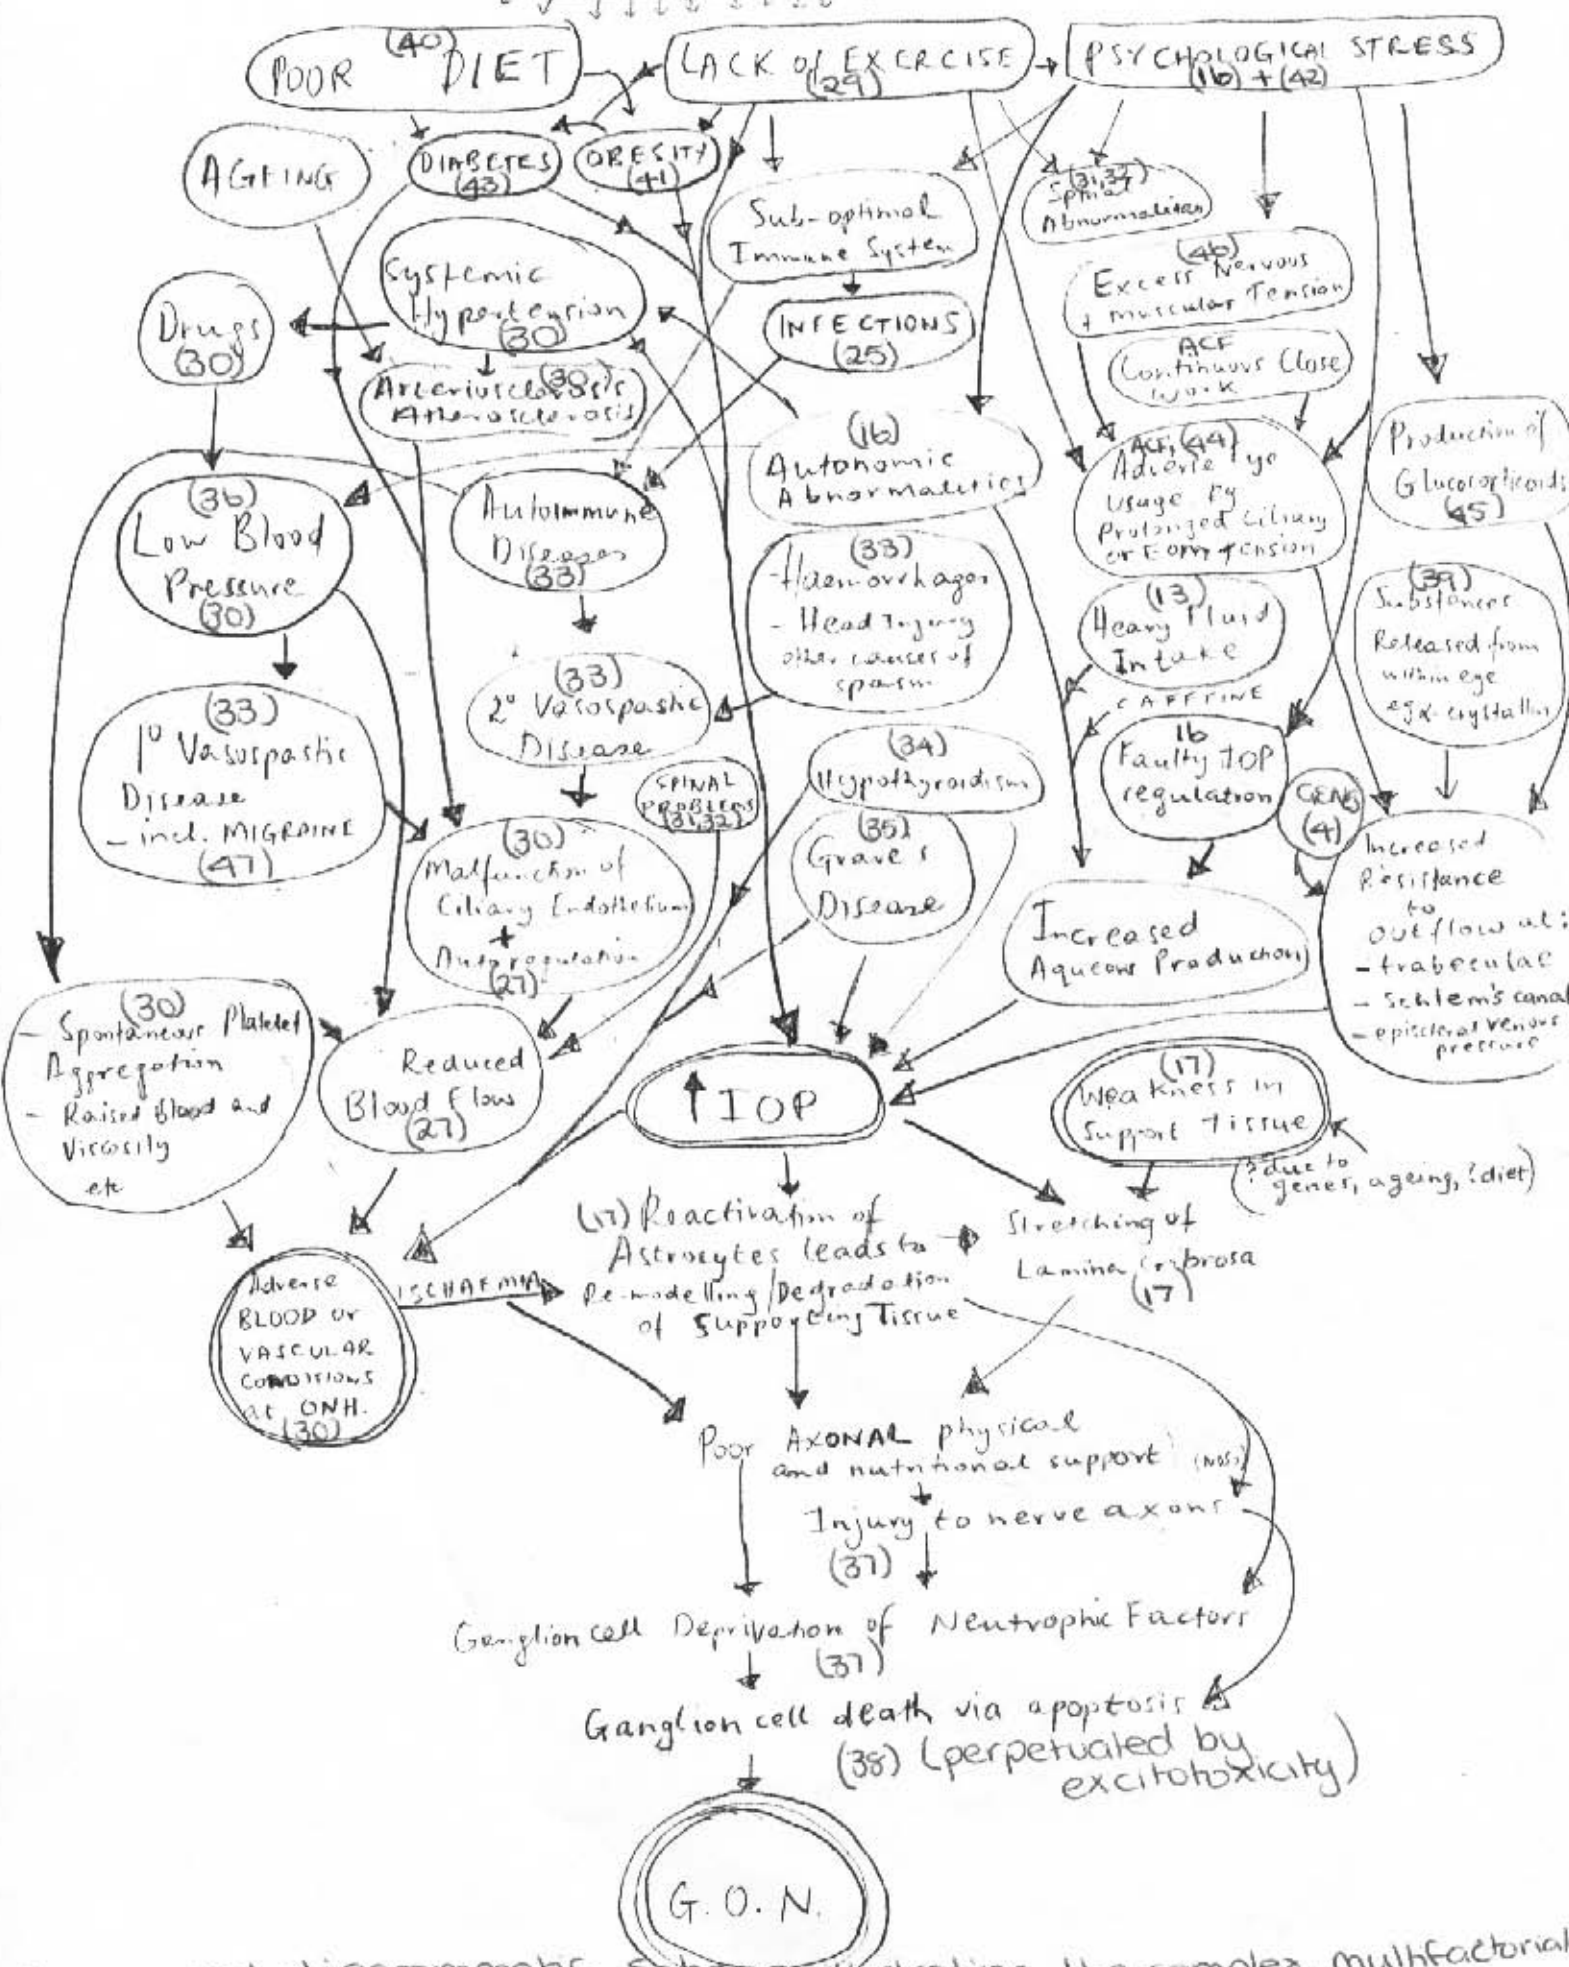 (40)
POOR DIET
LACK of EXERCISE
(29)
PSYCHOLOGICAL STRESS
(16) + (42)
AGEING
DIABETES
(43)
OBESITY
(41)
Sub-optimal
Immune System
(31,32)
Spinal
Abnormalities
Systemic
Hypertension
(30)
Drugs
(30)
INFECTIONS
(25)
(46)
Excess Nervous
+ muscular Tension
ACF
Continuous Close
work
(30)
Arteriosclerosis
Atherosclerosis
(16)
Autonomic
Abnormalities
ACF, (44)
Adverse Eye
Usage Eg
Prolonged Ciliary
or EOM tension
Production of
Glucocorticoids
(45)
(36)
Low Blood
Pressure
(30)
Autoimmune
Diseases
(33)
(33)
- Haemorrhages
- Head Injury
other causes of
spasm
(13)
Heavy Fluid
Intake
CAFFEINE
(39)
Substances
Released from
within eye
eg α-crystallin
(33)
1° Vasospastic
Disease
- incl. MIGRAINE
(47)
(33)
2° Vasospastic
Disease
SPINAL
PROBLEMS
(31,32)
(34)
Hypothyroidism
16
Faulty IOP
regulation
(4)
(30)
Malfunction of
Ciliary Endothelium
+
Autoregulation
(27)
(35)
Grave's
Disease
Increased
Aqueous Production
Increased
Resistance
to
outflow at:
- trabeculae
- Schlem's canal
- episcleral venous
pressure
(30)
- Spontaneous Platelet
Aggregation
- Raised Blood and
Viscosity
etc
Reduced
Blood Flow
(27)
↑ IOP
(17)
Weakness in
Support Tissue
(? due to
genes, ageing, ? diet)
(17) Reactivation of
Astrocytes leads to
Re-modelling/Degradation
of Supporting Tissue
Stretching of
Lamina cribrosa
(17)
Adverse
BLOOD or
VASCULAR
CONDITIONS
at ONH.
(30)
ISCHAEMIA
Poor AXONAL physical
and nutritional support
Injury to nerve axons
(37)
Ganglion cell Deprivation of Neutrophic Factors
(37)
Ganglion cell death via apoptosis
(38) (perpetuated by
excitotoxicity)
G.O.N.
the complex multifactorial